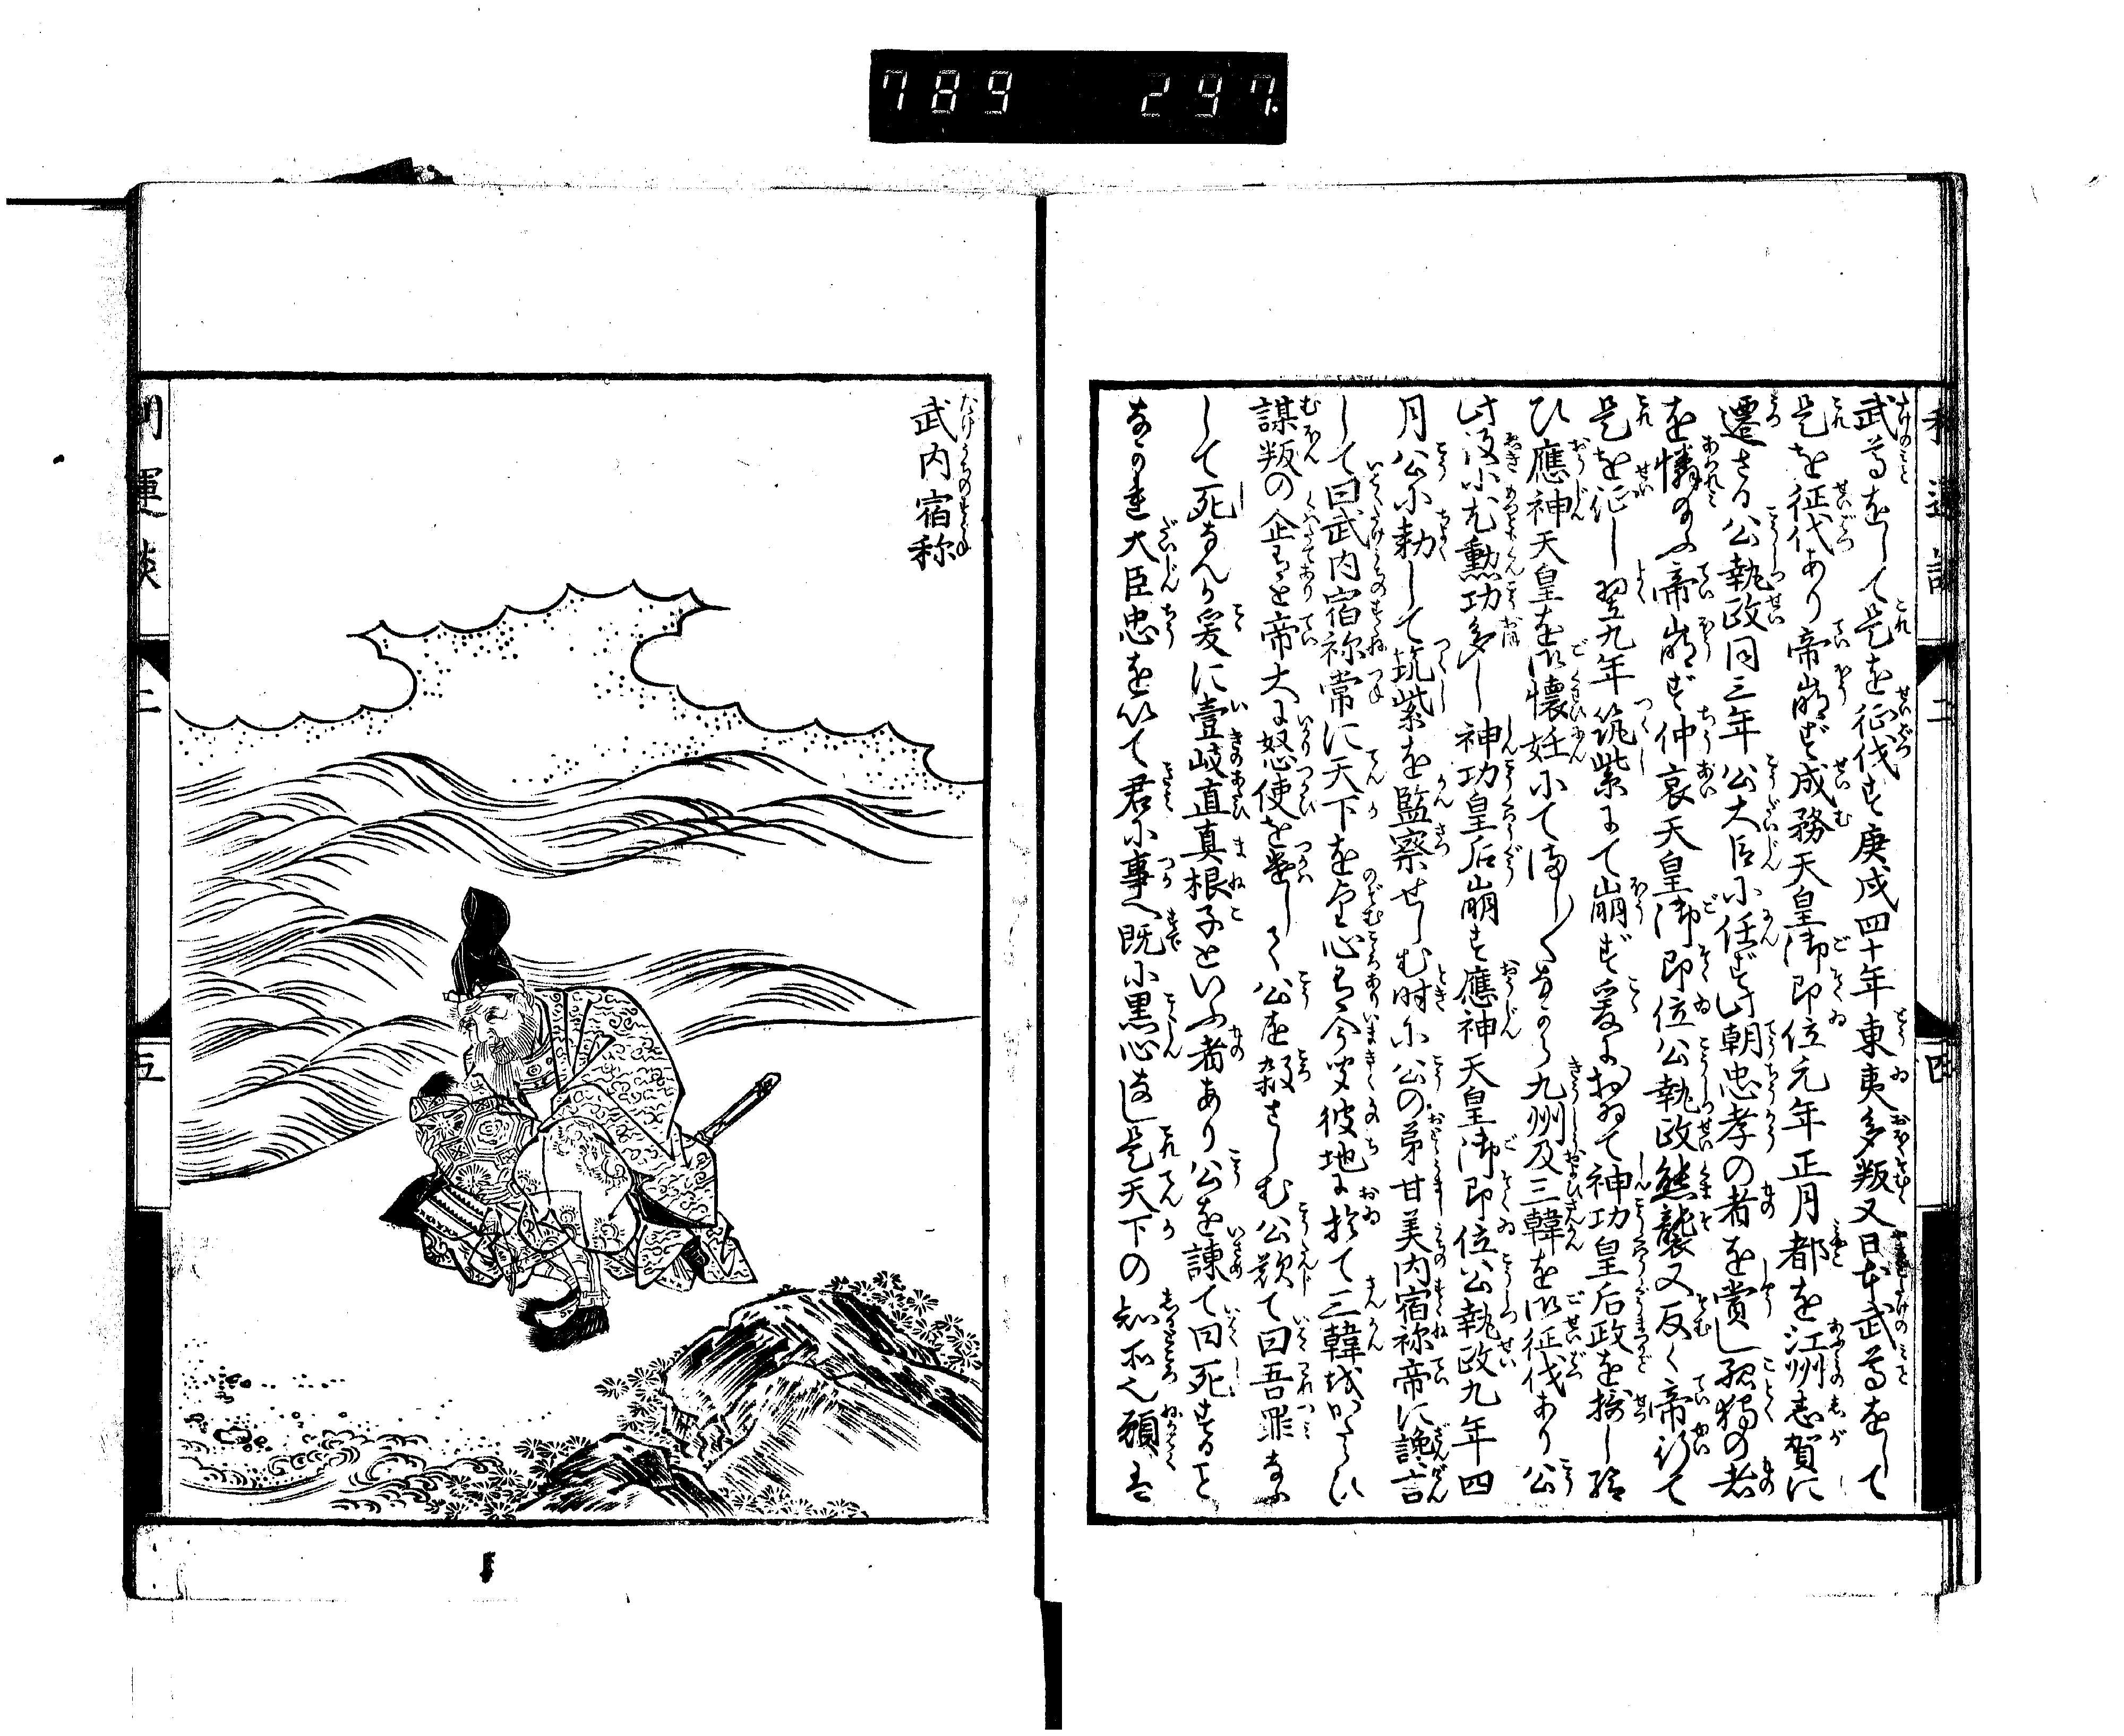 789 297
武尊をして是を征伐す庚戌四十年東夷多叛又日本武尊をして
是を征伐あり帝崩ず成務天皇御即位元年正月都を江州志賀に
遷さる公執政同三年公大臣に任ず此朝忠孝の者を賞し孤獨の者
を憐給ふ帝崩ず仲哀天皇御即位公執政熊襲又反く帝行て
是を征し翌九年筑紫にて崩ず爰において神功皇后政を摂し給
ひ應神天皇を御懐妊にて海しくながら九州及三韓を御征伐あり公
此役に尤勲功多し神功皇后崩ず應神天皇御即位公執政九年四
月公に勅して筑紫を監察せしむ時に公の弟甘美内宿祢帝に讒言
して曰武内宿祢常に天下を望心有今聞彼地に於て三韓をかたらひ
謀叛の企有と帝大に怒使を遣して公を殺さしむ公歎て曰吾罪なふ
して死なんか爰に壹岐直真根子といふ者あり公を諌て曰死すること
なかれ大臣忠を以て君に事へ既に黒心なし是天下の知所也願は
四
武内宿祢
二
五